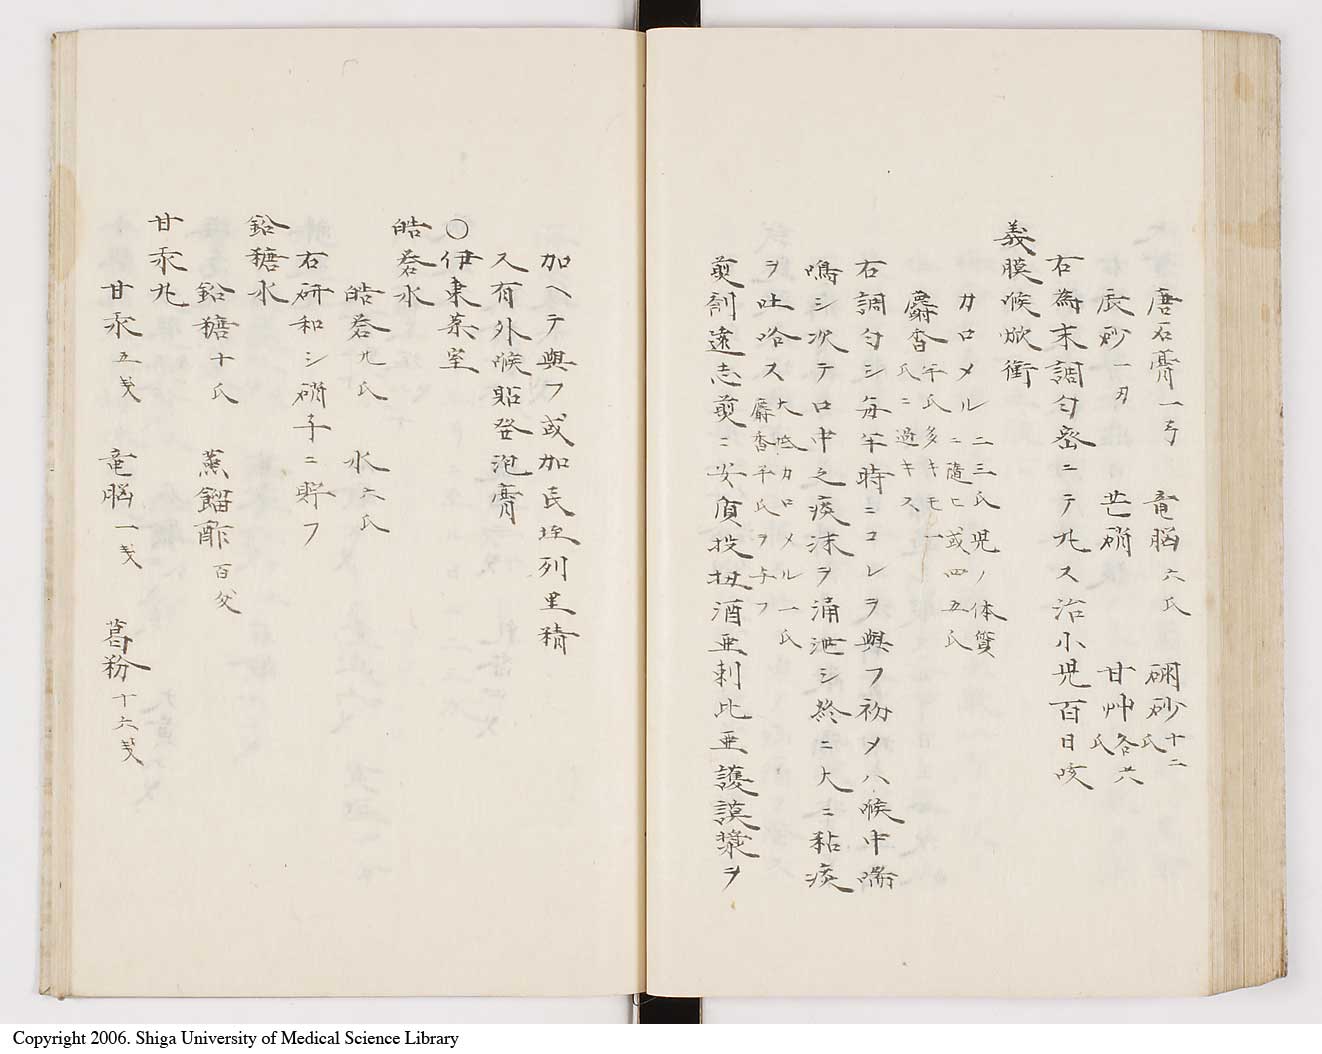 唐石膏一弓 竜脳六氏 硼砂十二氏
辰砂一刃 芒硝 甘艸各廿氏
右為末調匀密ニテ丸ス治小児百日咳
義膜喉焮衝
カロメル二三氏児ノ体質ニ随ヒ或四五氏
麝香半氏多キモ一氏ニ過キス
右調匀シ毎半時ニコレヲ與フ初メハ喉中喘
鳴シ次テ口中之痰沫ヲ涌泄シ終ニ大ニ粘痰
ヲ吐咯ス大抵カロメル一氏麝香半氏ヲ与フ
煎剤遠志煎ニ安質投扭酒亜刺比亜護謨漿ヲ
加ヘテ與フ或加民埀列里精
又有外喉貼登泡膏
○伊東葉室
皓礬水
皓礬九氏 水六氏
右研和シ硝子ニ貯フ
鉛糖水
鉛糖十氏 蒸餾酢百
甘汞丸
甘汞五 竜脳一 葛粉十六